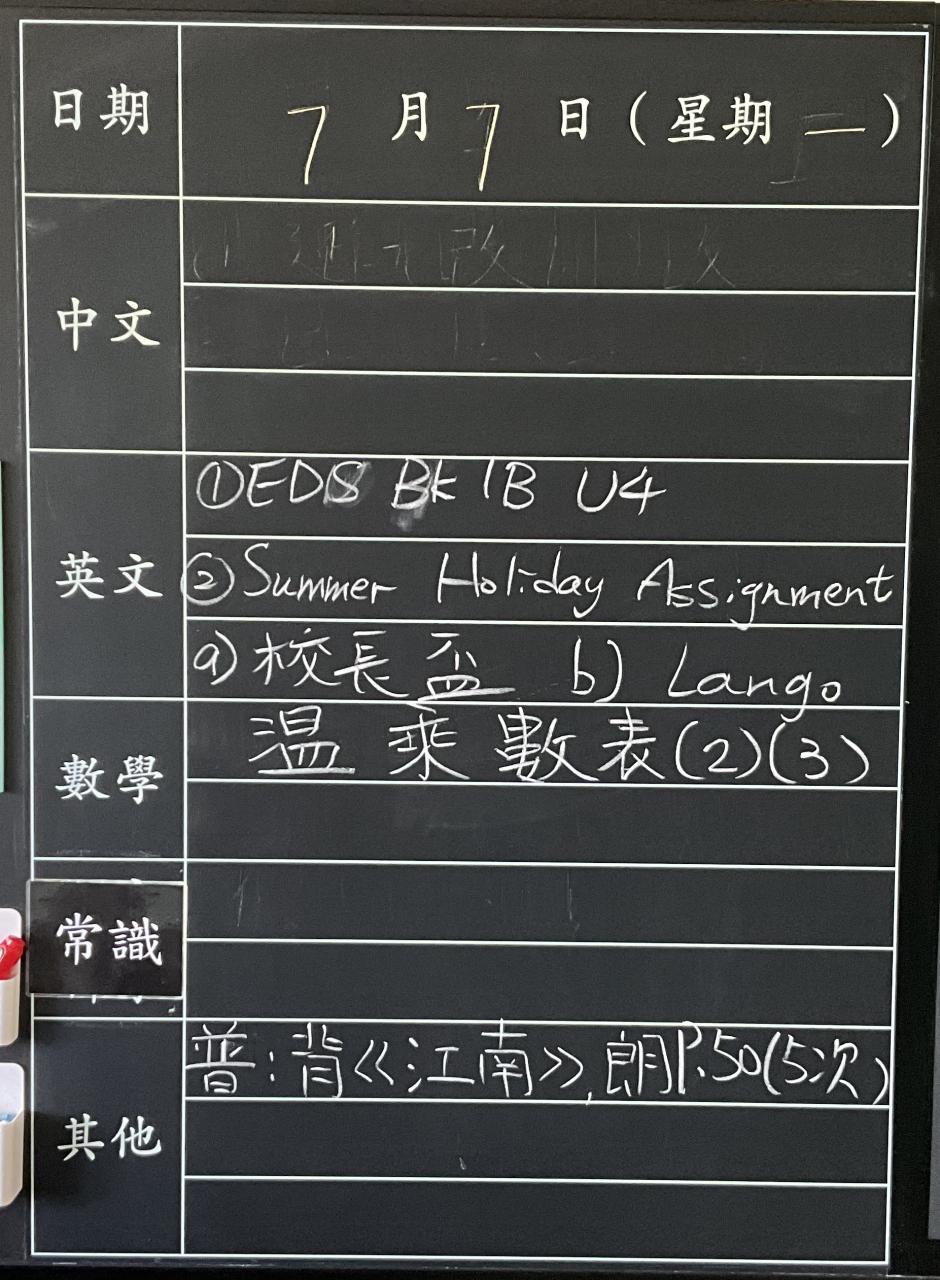 日期 7月7日(星期一)
中文
英文 ①EDS BK 1B U4
②Summer Holiday Assignment
a) 校長盃 b) Lango
數學 溫乘數表(2)(3)
常識
其他 普:背《江南》,朗P.50(5次)